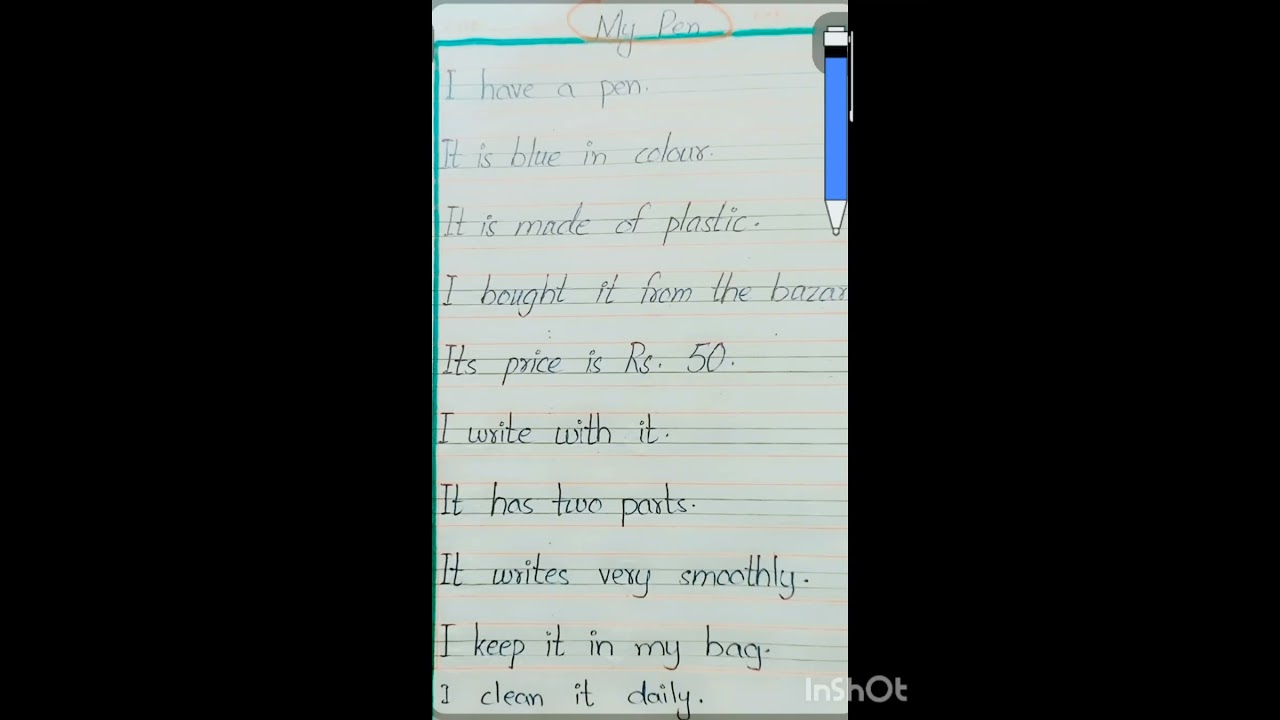 My Pen
I have a pen.
It is blue in colour.
It is made of plastic.
I bought it from the bazar
Its price is Rs. 50.
I write with it.
It has two parts.
It writes very smoothly.
I keep it in my bag.
I clean it daily.
InShOt